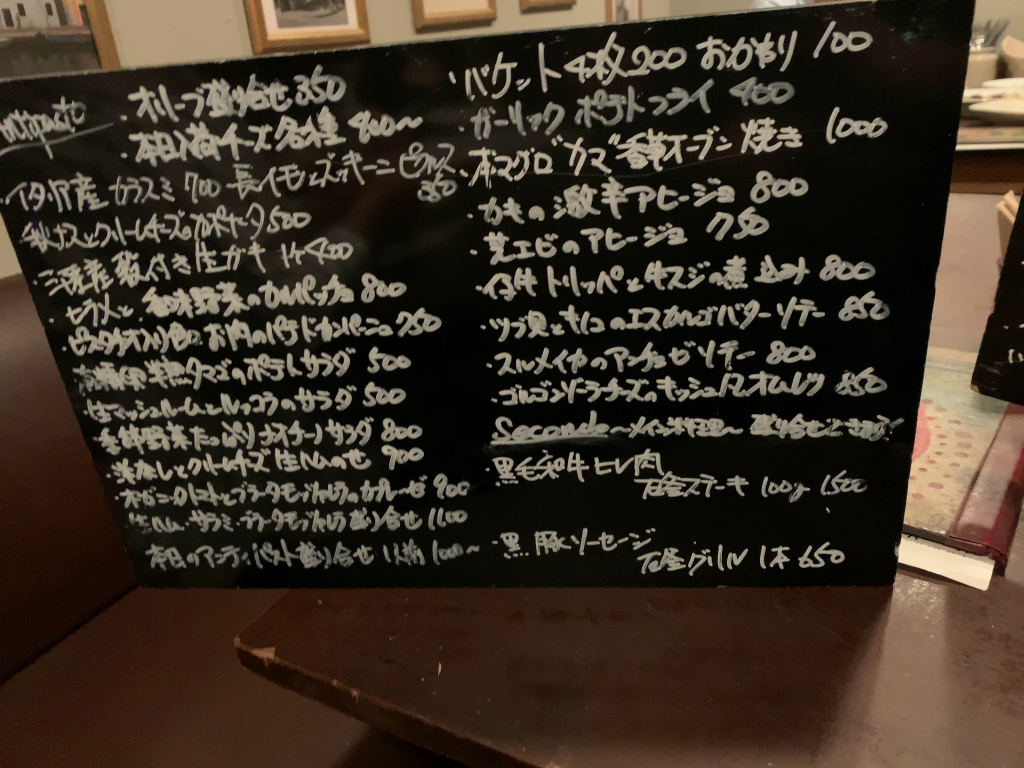 Antipasto
・オリーブ盛り合せ 350
・本日入荷チーズ各種 800〜
・イタリア産カラスミ 700 長イモとズッキーニピクルス 350
・秋ナスとクリームチーズのカポナータ 500
・三陸産殻付き生ガキ 1ケ400
・ヒラメと香味野菜のカルパッチョ 800
・ピスタチオ入り お肉のパテドカンパーニュ 750
半熟タマゴのポテトサラダ 500
・生マッシュルームとルッコラのサラダ 500
野菜たっぷり サラダ 800
・洋なしとクリームチーズ 生ハムのせ 900
・オーガニックトマトとブラータモッツァレラのカプレーゼ 900
・生ハム・サラミ・ブラータモッツァレラ盛り合せ 1100
・本日のアンティパスト盛り合せ 1人前 1000〜
・バケット 4枚200 おかわり 100
・ガーリックポテトフライ 400
・本マグロ"カマ"香草オーブン焼き 1000
・カキの激辛アヒージョ 800
・芝エビのアヒージョ 750
牛トリッパと牛スジの煮込み 800
・ツブ貝とキノコのエスカルゴバターソテー 850
・スルメイカのアンチョビソテー 800
・ゴルゴンゾーラチーズのキッシュ風オムレツ 850
Secondo 〜メイン料理〜 盛り合せできます!
・黒毛和牛ヒレ肉
石釜ステーキ 100g 1500
・黒豚ソーセージ
石釜グリル 1本 650